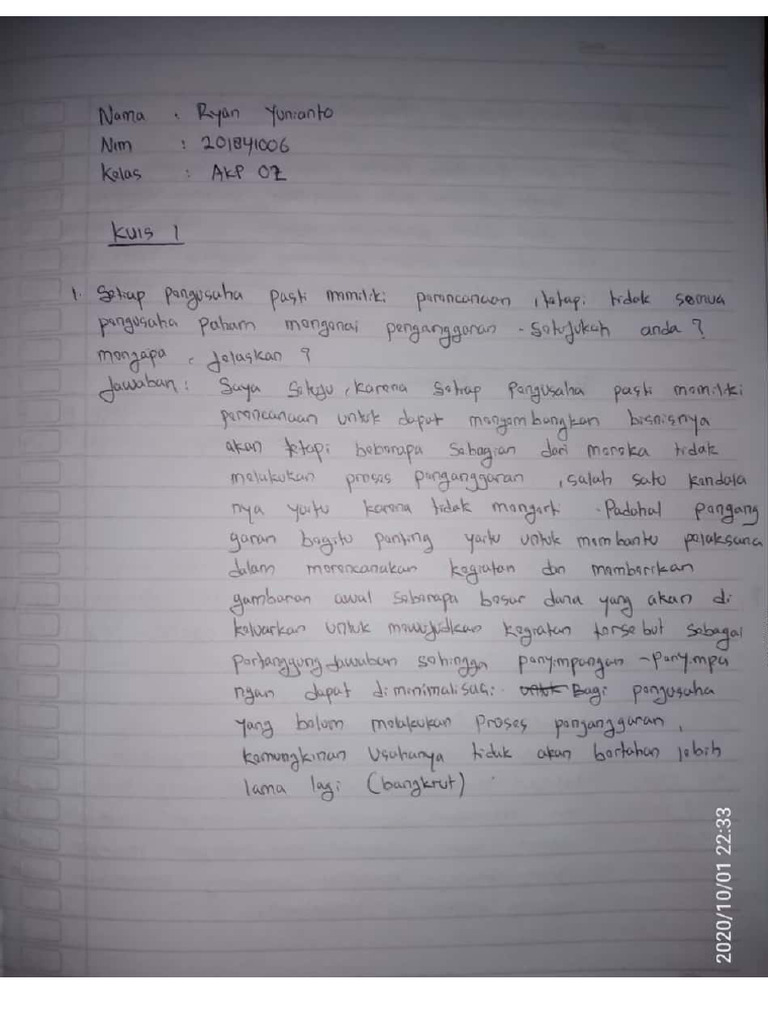 Nama : Ryan Yunianto
Nim : 201841006
Kelas : AKP 02
Kuis 1
1. Setiap pengusaha pasti memiliki perencanaan, tetapi tidak semua
pengusaha paham mengenai penganggaran. Setujukah anda?
mengapa, jelaskan?
Jawaban: Saya setuju, karena setiap pengusaha pasti memiliki
perencanaan untuk dapat mengembangkan bisnisnya
akan tetapi beberapa sebagian dari mereka tidak
melakukan proses penganggaran, salah satu kendala
nya yaitu karena tidak mengerti. Padahal pengang
garan begitu penting yaitu untuk membantu pelaksana
dalam merencanakan kegiatan dan memberikan
gambaran awal seberapa besar dana yang akan di
keluarkan untuk mewujudkan kegiatan tersebut sebagai
pertanggung jawaban sehingga penyimpangan-penyimpa
ngan dapat diminimalisasi. untuk Bagi pengusaha
yang belum melakukan proses penganggaran,
kemungkinan usahanya tidak akan bertahan lebih
lama lagi (bangkrut)
2020/10/01 22:33